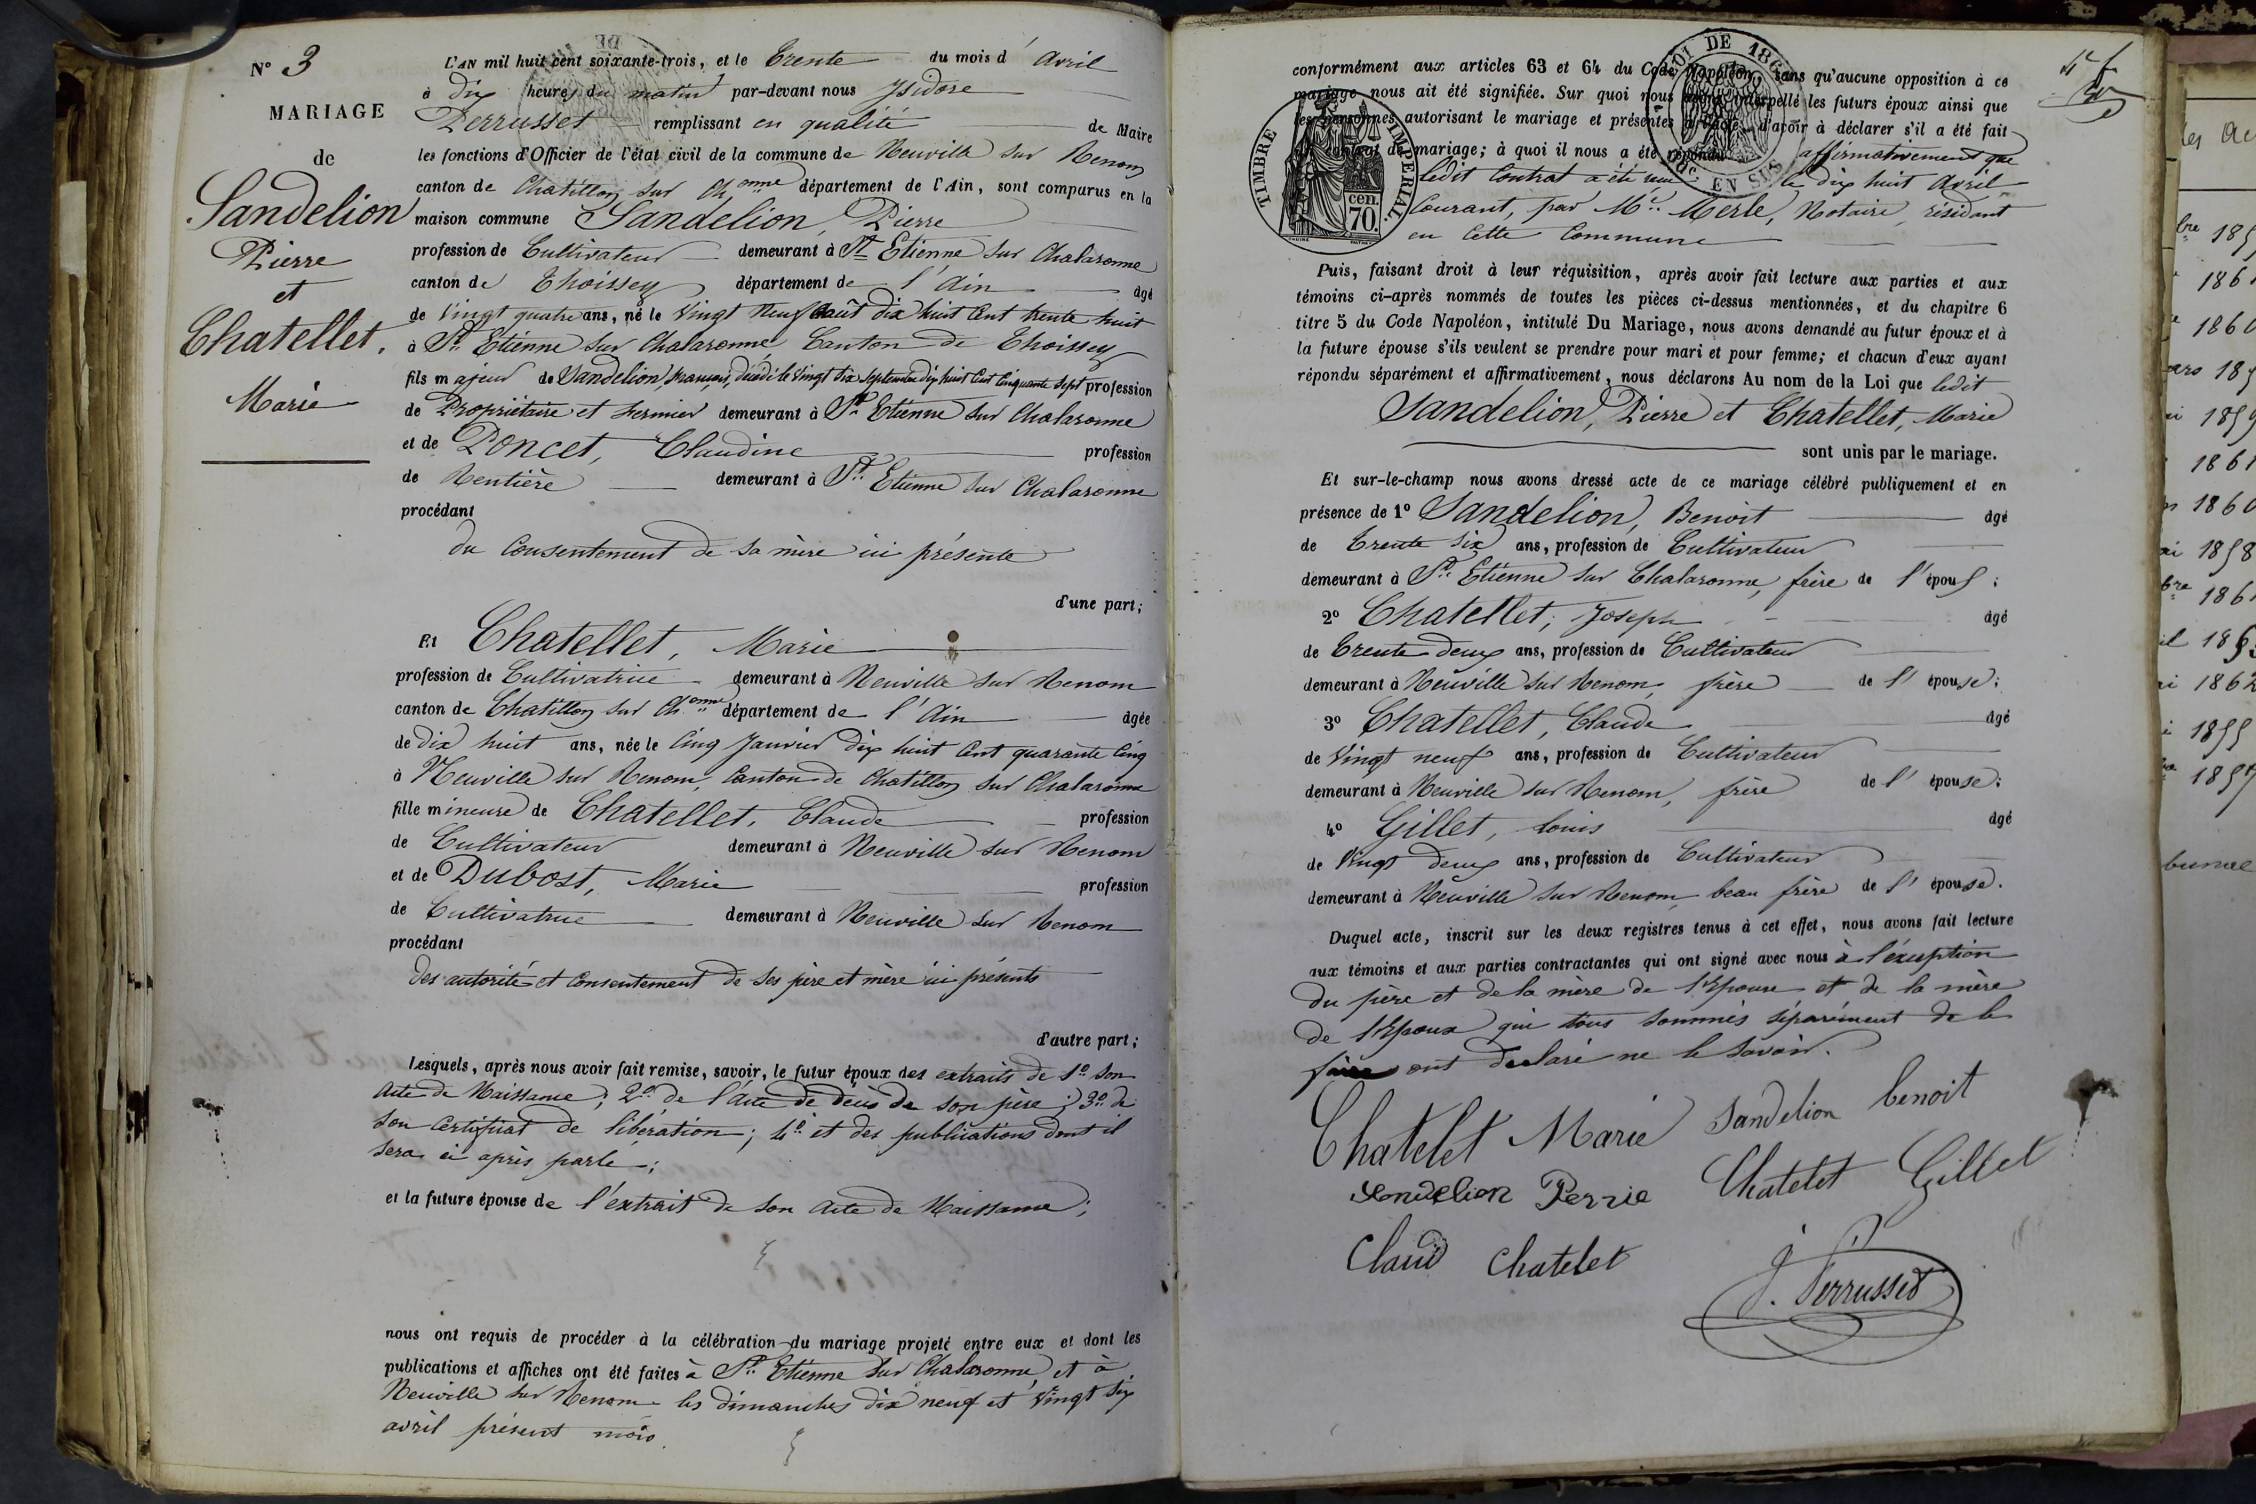 N° 3
MARIAGE
de
Sandelion
Pierre
et
Chatellet,
Marie
L'AN mil huit cent soixante-trois, et le Trente du mois d'Avril
à dix heures du matin par-devant nous Ysidore
Perrusset remplissant en qualité de Maire
les fonctions d'Officier de l'état civil de la commune de Neuville sur Renom
canton de Chatillon sur Ch.onne département de l'Ain, sont comparus en la
maison commune Sandelion, Pierre
profession de Cultivateur demeurant à St Etienne sur Chalaronne
canton de Thoissey département de l'Ain âgé
de vingt quatre ans, né le vingt neuf août dix huit cent trente huit
à St Etienne sur Chalaronne Canton de Thoissey
fils majeur de Sandelion français, décédé le vingt six septembre dix huit cent cinquante sept profession
de Propriétaire et fermier demeurant à St Etienne sur Chalaronne
et de Poncet, Claudine profession
de Rentière demeurant à St Etienne sur Chalaronne
procédant
du consentement de sa mère ici présente
d'une part;
Et Chatellet, Marie
profession de Cultivatrice demeurant à Neuville sur Renom
canton de Chatillon sur Ch.onne département de l'Ain âgée
de dix huit ans, née le cinq Janvier dix huit cent quarante cinq
à Neuville sur Renom, Canton de Chatillon sur Chalaronne
fille mineure de Chatellet, Claude profession
de Cultivateur demeurant à Neuville sur Renom
et de Dubost, Marie profession
de Cultivatrice demeurant à Neuville sur Renom
procédant
des autorité et consentement de ses père et mère ici présents
d'autre part;
Lesquels, après nous avoir fait remise, savoir, le futur époux des extraits de 1° son
acte de Naissance; 2° de l'acte de décès de son père; 3° de
son certificat de libération; 4° et des publications dont il
sera ci après parlé;
et la future épouse de l'extrait de son acte de Naissance;
nous ont requis de procéder à la célébration du mariage projeté entre eux et dont les
publications et affiches ont été faites à St Etienne sur Chalaronne, et à
Neuville sur Renom les dimanches dix neuf et vingt six
avril présent mois.
conformément aux articles 63 et 64 du Code Napoléon, sans qu'aucune opposition à ce
mariage nous ait été signifiée. Sur quoi nous avons interpellé les futurs époux ainsi que
les personnes autorisant le mariage et présentes à l'acte, d'avoir à déclarer s'il a été fait
contrat de mariage; à quoi il nous a été répondu affirmativement que
ledit Contrat a été reçu le dix huit Avril
Courant, par Me Merle, Notaire, résidant
en cette Commune
TIMBRE IMPÉRIAL
70 cen.
LOI DE 186
EN SUS
Puis, faisant droit à leur réquisition, après avoir fait lecture aux parties et aux
témoins ci-après nommés de toutes les pièces ci-dessus mentionnées, et du chapitre 6
titre 5 du Code Napoléon, intitulé Du Mariage, nous avons demandé au futur époux et à
la future épouse s'ils veulent se prendre pour mari et pour femme; et chacun d'eux ayant
répondu séparément et affirmativement, nous déclarons Au nom de la Loi que ledit
Sandelion, Pierre et Chatellet, Marie
sont unis par le mariage.
Et sur-le-champ nous avons dressé acte de ce mariage célébré publiquement et en
présence de 1° Sandelion, Benoit âgé
de Trente six ans, profession de Cultivateur
demeurant à St Etienne sur Chalaronne, frère de l'époux;
2° Chatellet, Joseph âgé
de Trente deux ans, profession de Cultivateur
demeurant à Neuville sur Renom, frère de l'épouse;
3° Chatellet, Claude âgé
de Vingt neuf ans, profession de Cultivateur
demeurant à Neuville sur Renom, frère de l'épouse;
4° Gillet, Louis âgé
de Vingt deux ans, profession de Cultivateur
demeurant à Neuville sur Renom beau frère de l'épouse.
Duquel acte, inscrit sur les deux registres tenus à cet effet, nous avons fait lecture
aux témoins et aux parties contractantes qui ont signé avec nous à l'exception
du père et de la mère de l'Epouse et de la mère
de l'Epoux qui tous sommés séparément de le
faire ont déclaré ne le savoir.
Chatelet Marie Sandelion benoit
Sandelion Perrie Chatelet Gillet
Claud Chatelet
J. Perrusset